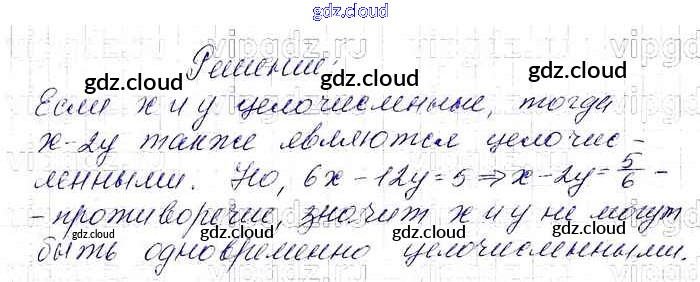 gdz.cloud
Решение:
Если x и y целочисленные, тогда
x-2y также являются целочис-
ленными. Но, 6x-12y=5⇒x-2y=5/6-
-противоречие, значит x и y не могут
быть одновременно целочисленными.
gdz.cloud gdz.cloud
gdz.cloud gdz.cloud
gdz.cloud gdz.cloud
gdz.cloud
vipgdz.ru